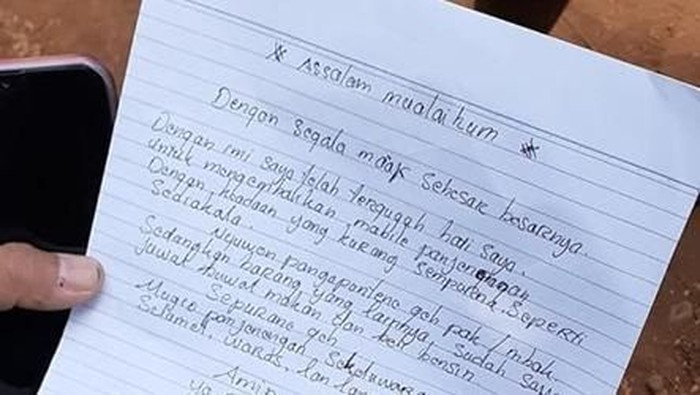 * Assalam mualaikum *
Dengan segala maap sebesar besarenya.
Dengan imi saya telah tergugah hati saya.
untuk mengembalikan mobile panjenengan
Dengan, kbadaan yang kurang sempurna. Seperti
Sediakala.
Nyuwon pangapantene geh pak / mbak.
Sedangkan barang yang lainnya, sudah saya
juwal buwat makan dan beli bensin
Sepurane geh
Mugeo panjenengan Sekeluwarga
Selamet, waras, lan lan
Amin
ya